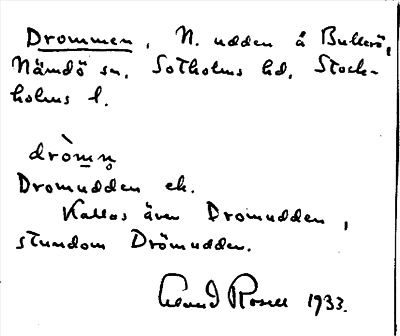 Drommen, N. udden å Bullerö,
Nämdö sn, Sotholms hd, Stock-
holms l.
dròmn̥
Dromudden ek.
Kallas även Dromudden,
stundom Drömudden.
Rosell 1933.